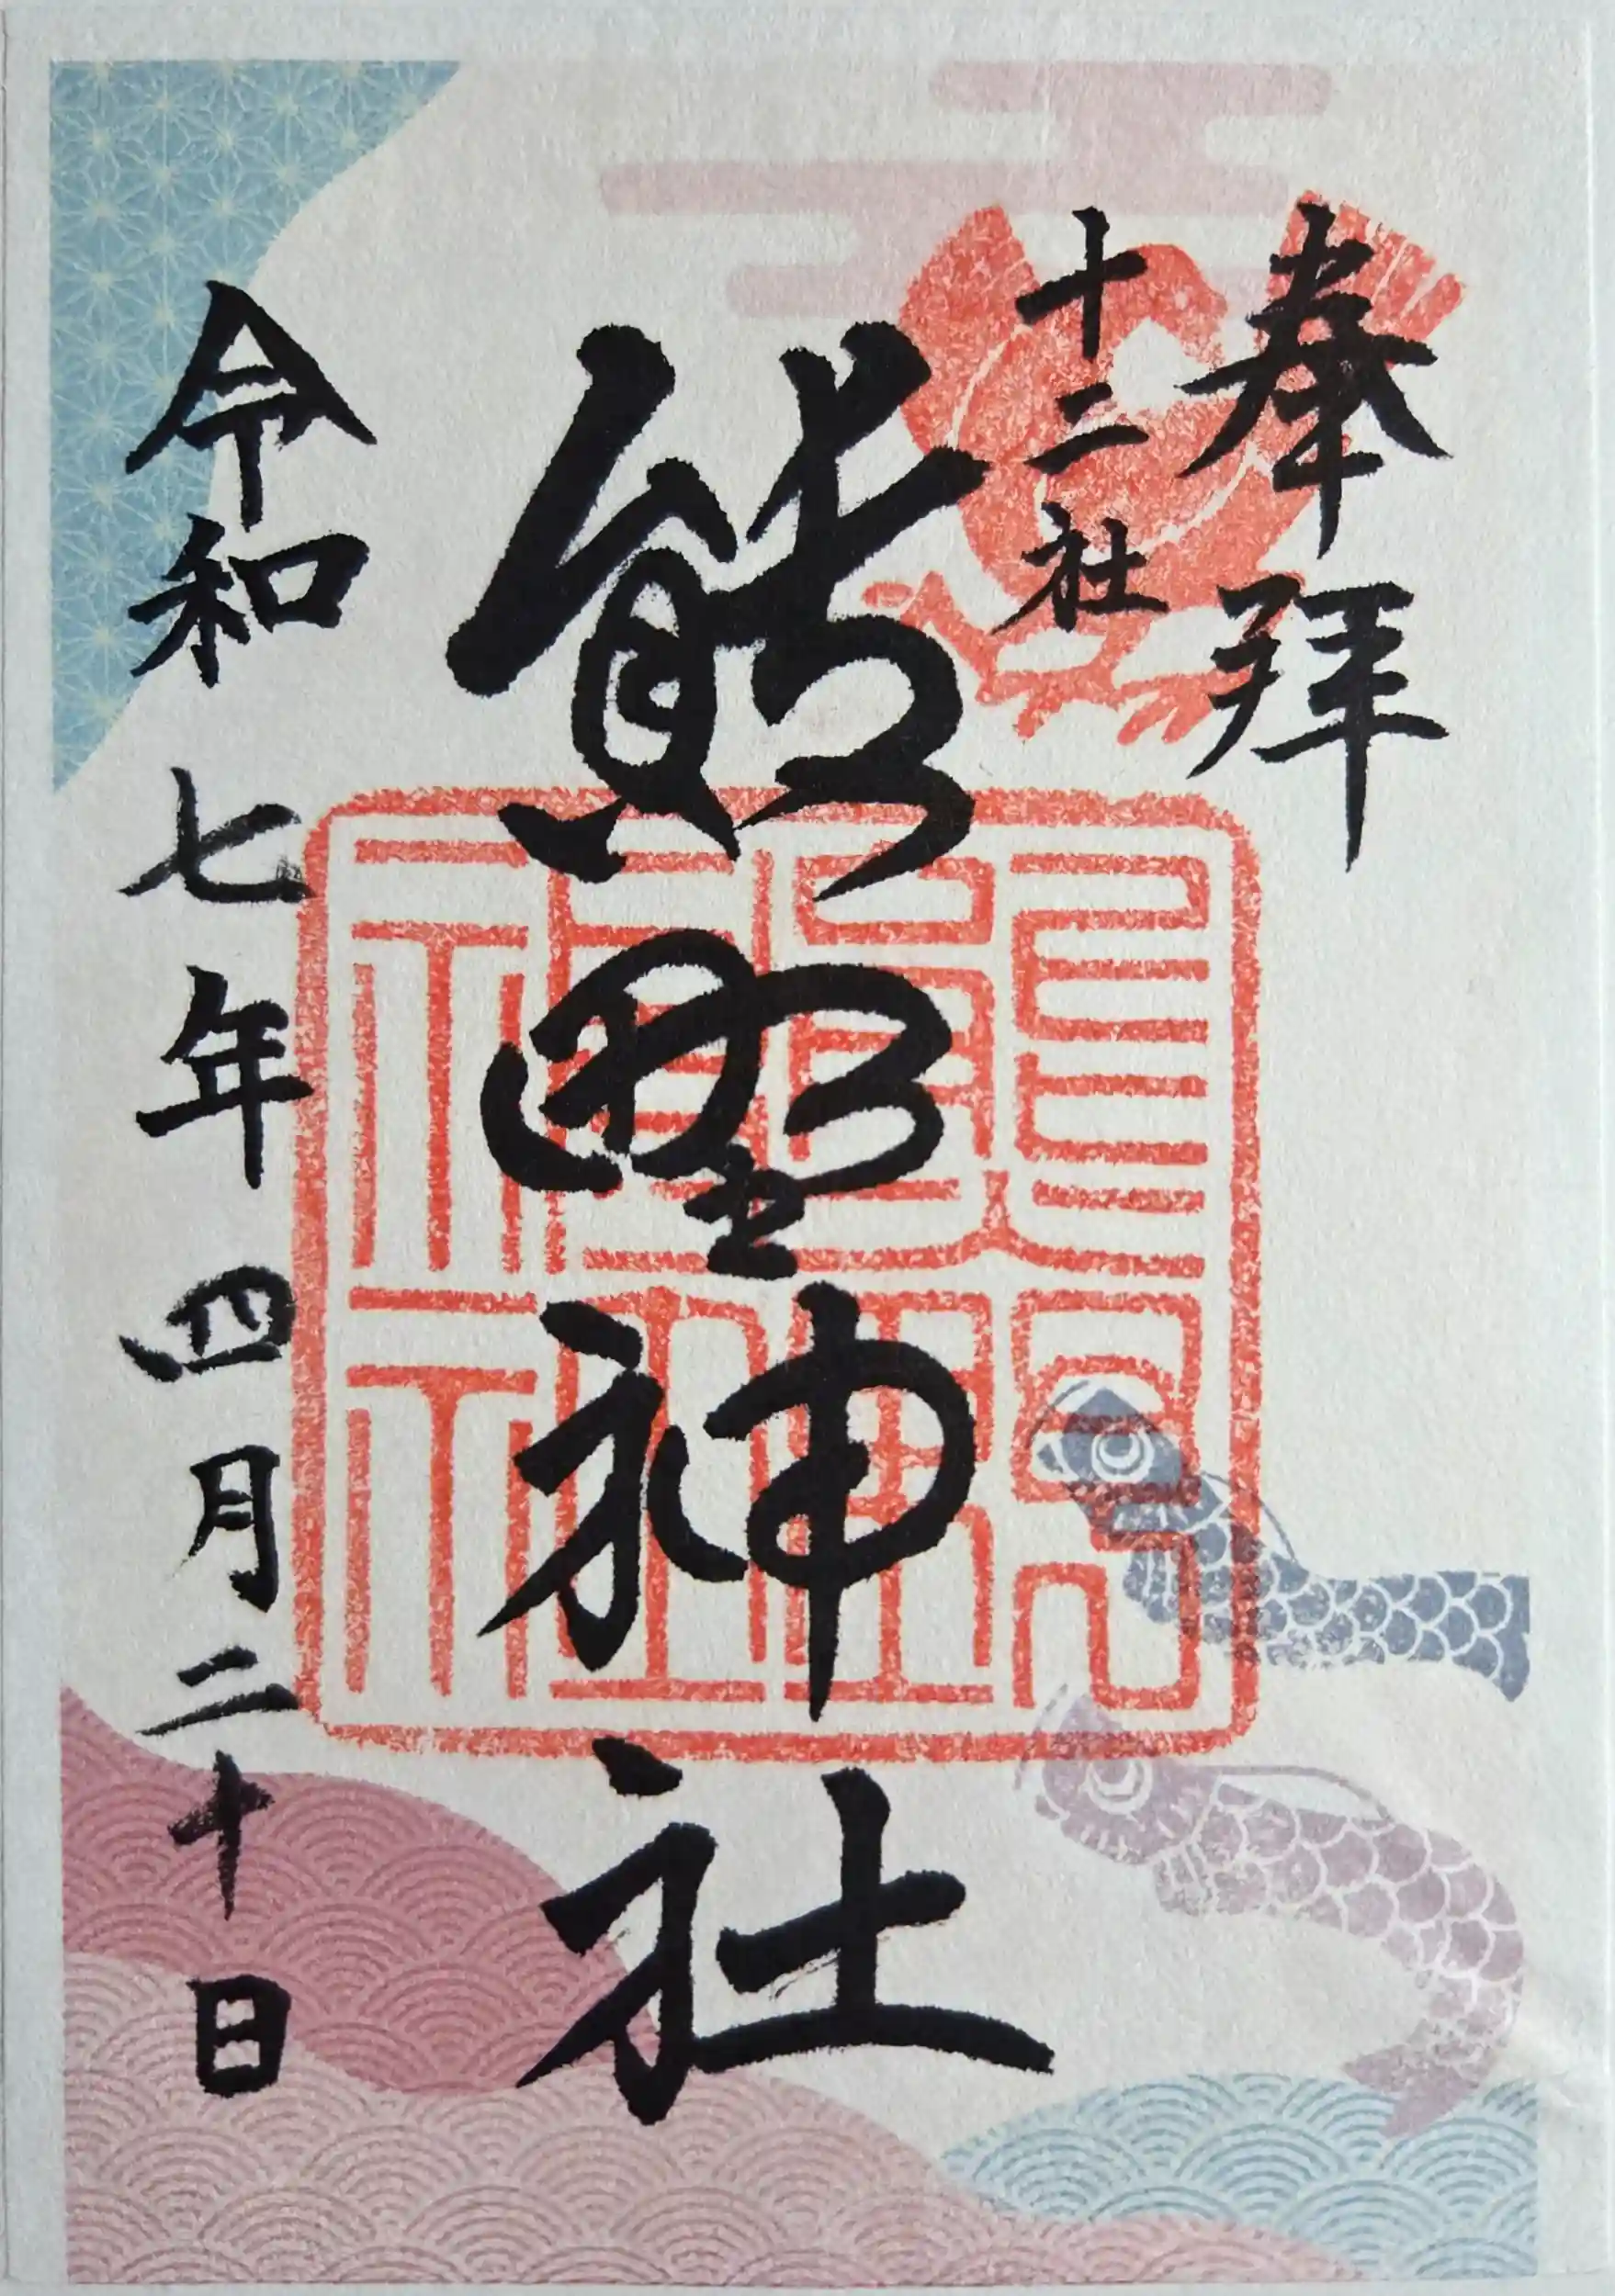 奉拜
十二社
熊野神社
令和七年四月二十日